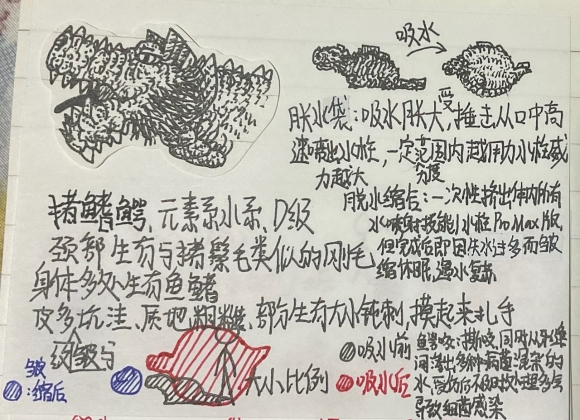 吸水
胀水袋:吸水胀大,受捶击从口中高
速喷出水柱,一定范围内越用力水柱威
力越大
脱水缩后:一次性挤出体内所有
水喷射技能!水柱Pro Max版,
但完成后即因失水过多而皱
缩休眠,遇水复苏
猪鳍鳄,元素系水系,D级
颈部生有与猪鬃毛类似的刚毛
身体多处生有鱼鳍
皮多坑洼、质地粗糙、部分生有大小钝刺,摸起来扎手
皱
:缩后
大小比例
吸水前
吸水后
鳄咬:撕咬,同时从牙缝
间渗出多种病菌混杂的
水,受伤后不及时处理多会
导致细菌感染